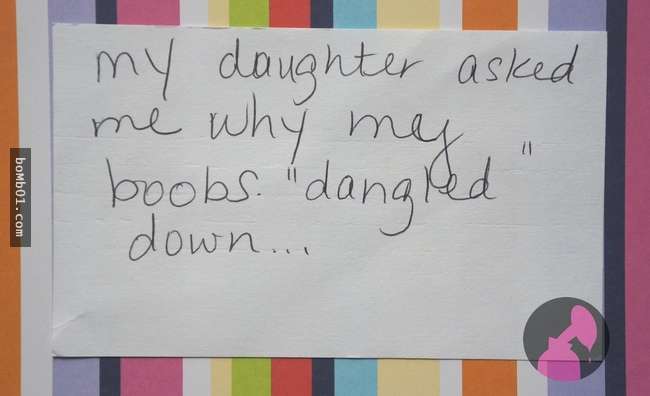 my daughter asked
me why my
boobs "dangled"
down...
boMb01.com